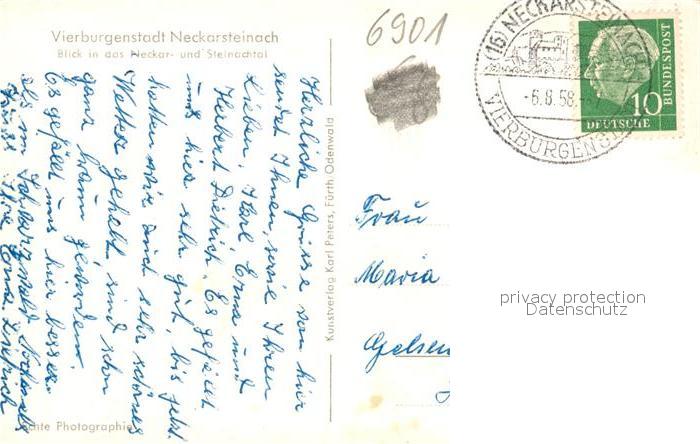 Vierburgenstadt Neckarsteinach
Blick in das Neckar- und Steinachtal
6901
(16) NECKARSTEINACH
-6.8.58.-
VIERBURGENS
10
DEUTSCHE
BUNDESPOST
Herzliche Grüsse von hier
sendet Ihnen, sowie Ihren
Lieben, Karl Erna und
Herbert Dietrich. Es gefällt
uns hier sehr gut, bis jetzt
hatten wir auch sehr schönes
Wetter gehabt, sind schon
ganz braun geworden.
Es gefällt uns hier besser
als im Schwarzwald. Nochmals
Grüsst Ihre Erna Dietrich
Echte Photographie
Kunstverlag Karl Peters, Fürth Odenwald
Frau
Maria
Gelsen
privacy protection
Datenschutz